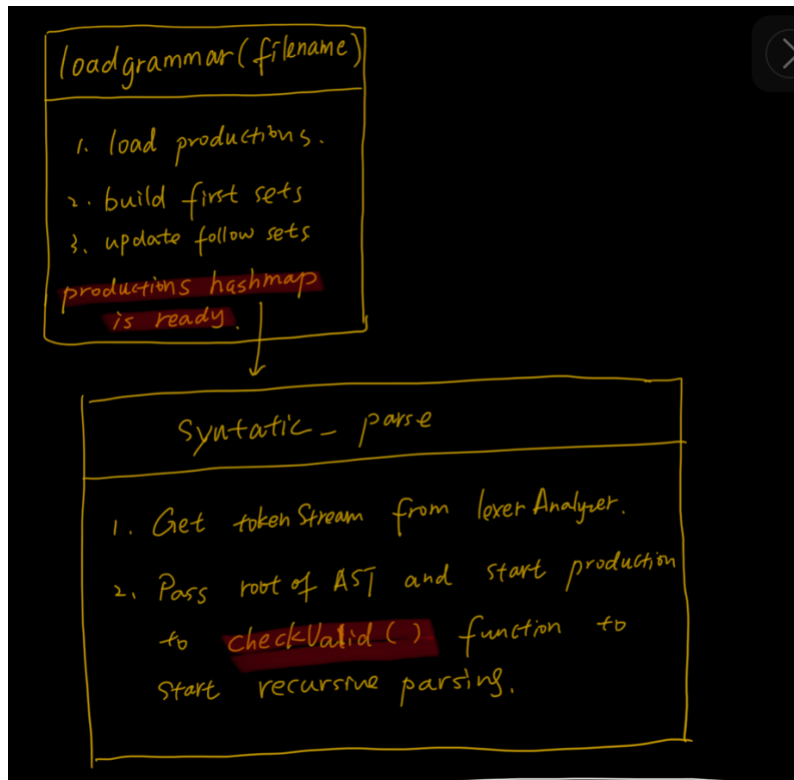 loadgrammar(filename)
1. load productions.
2. build first sets
3. update follow sets
productions hashmap
is ready.
Syntatic_parse
1. Get tokenStream from lexerAnalyzer.
2. Pass root of AST and start production
to checkValid() function to
start recursive parsing.